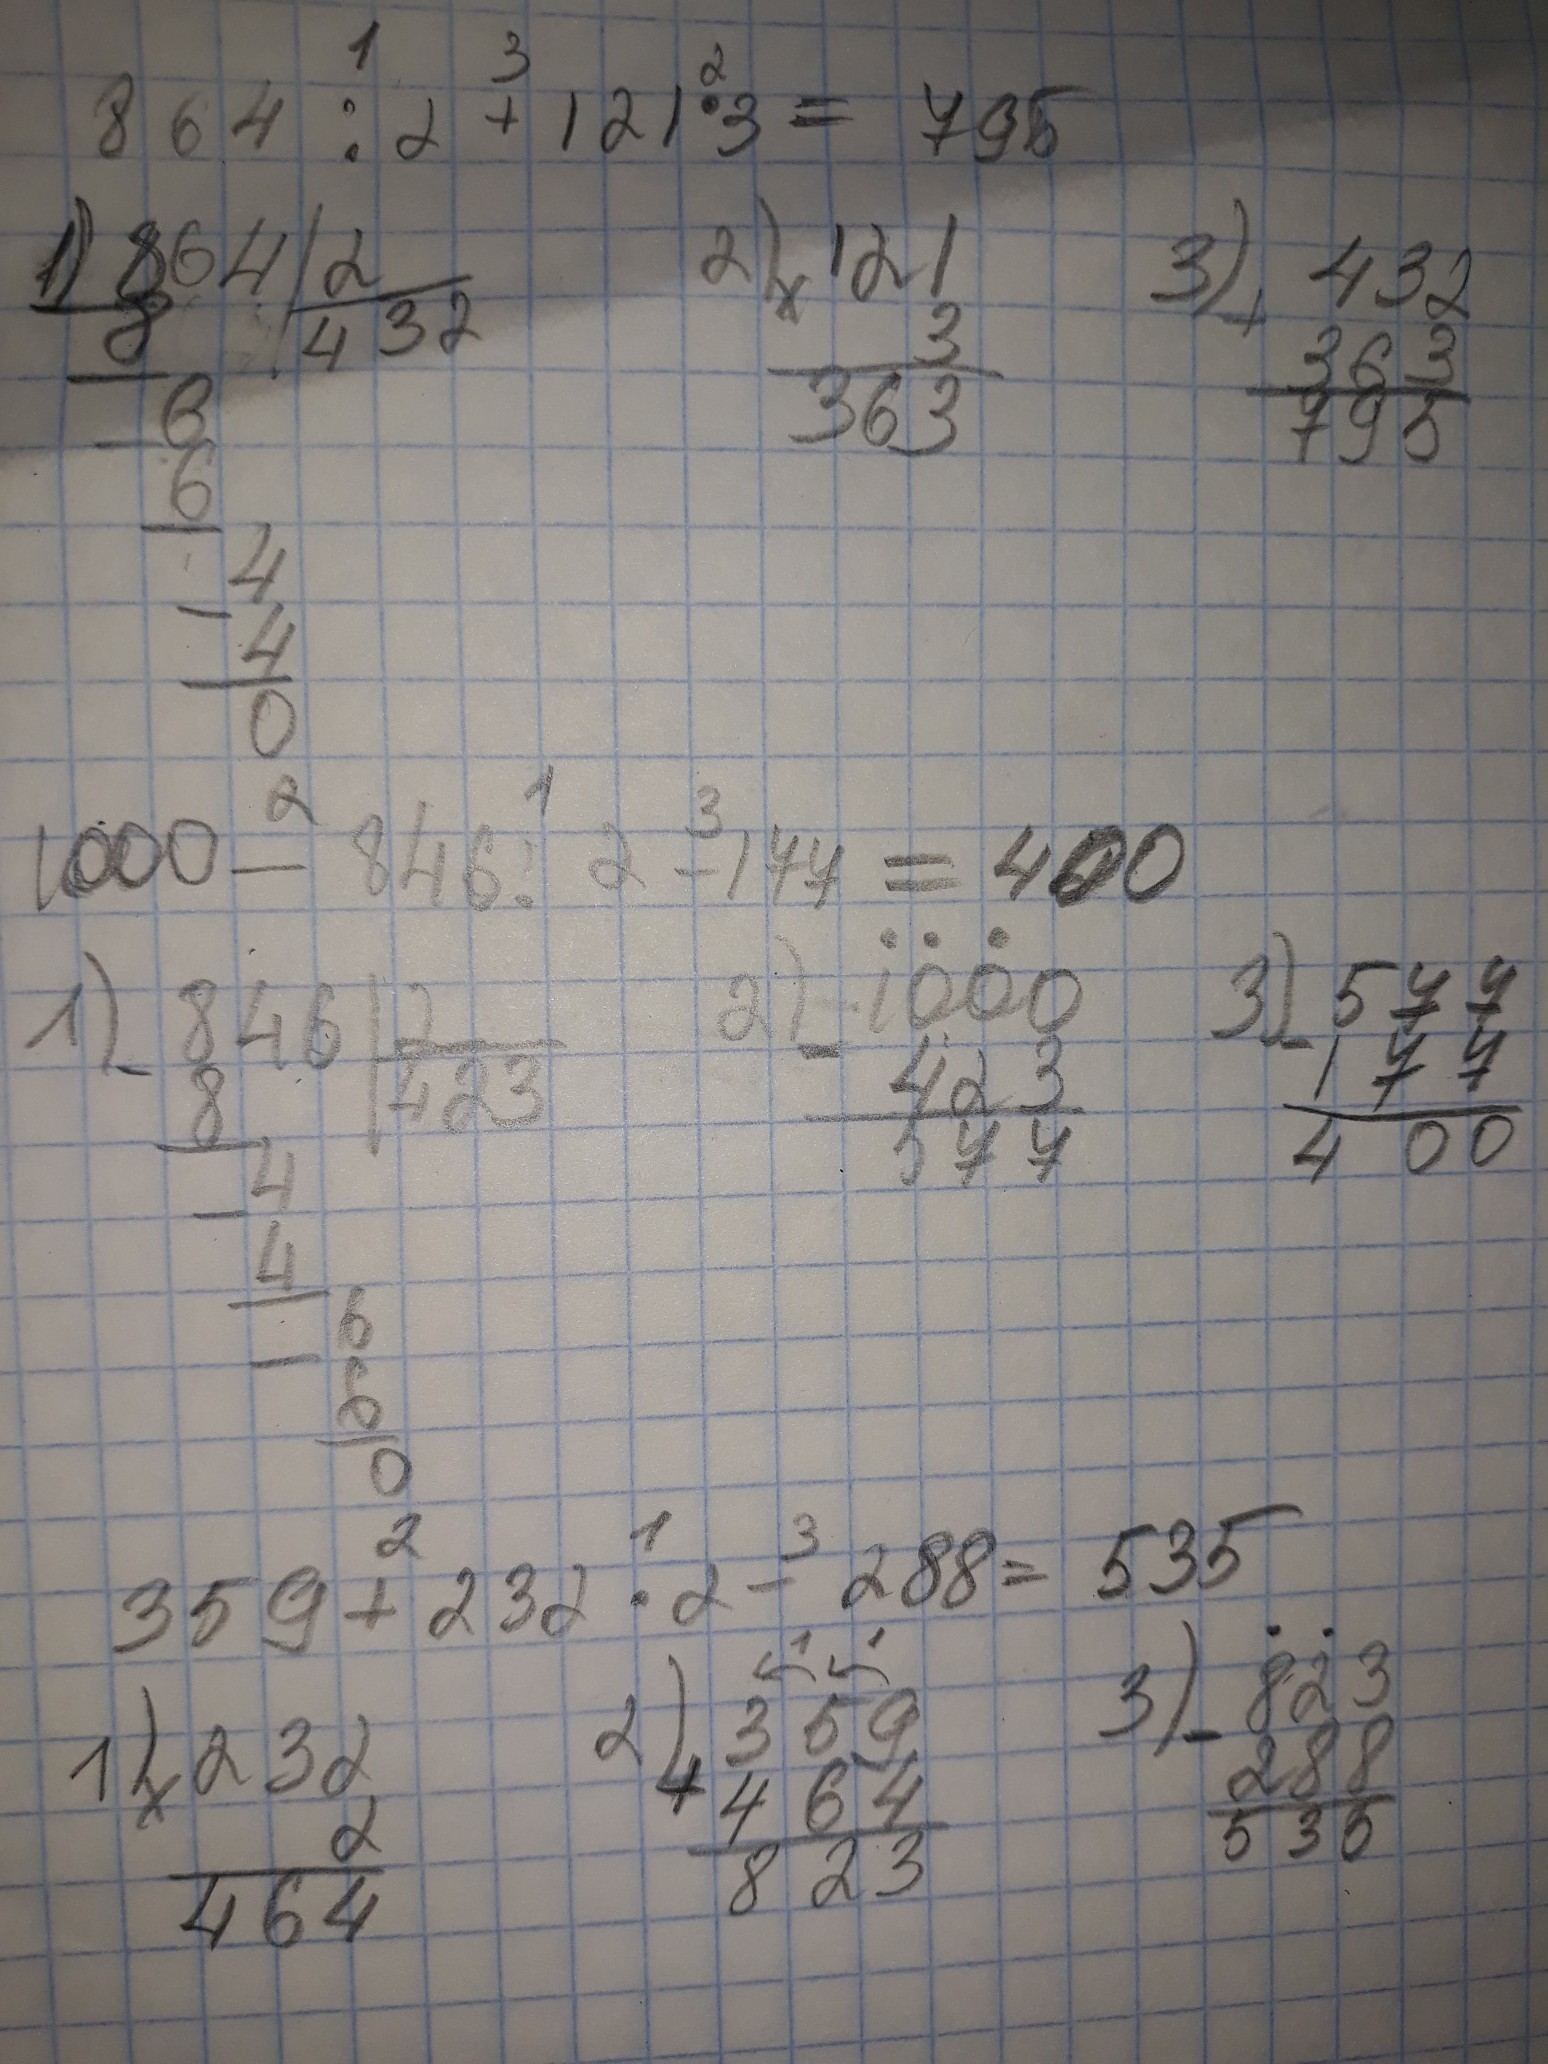 1 3 2
864 : 2 + 121 · 3 = 795
1) 864 | 2 2) × 121 3) + 432
– 8 432 3 363
– 6 363 795
6
– 4
4
0
2 1 3
1000 – 846 : 2 – 177 = 400
1) – 846 | 2 2) – 1000 3) – 577
8 423 423 177
– 4 577 400
4
– 6
6
0
2 1 3
359 + 232 · 2 – 288 = 535
1 1
1) × 232 2) + 359 3) – 823
2 464 288
464 823 535